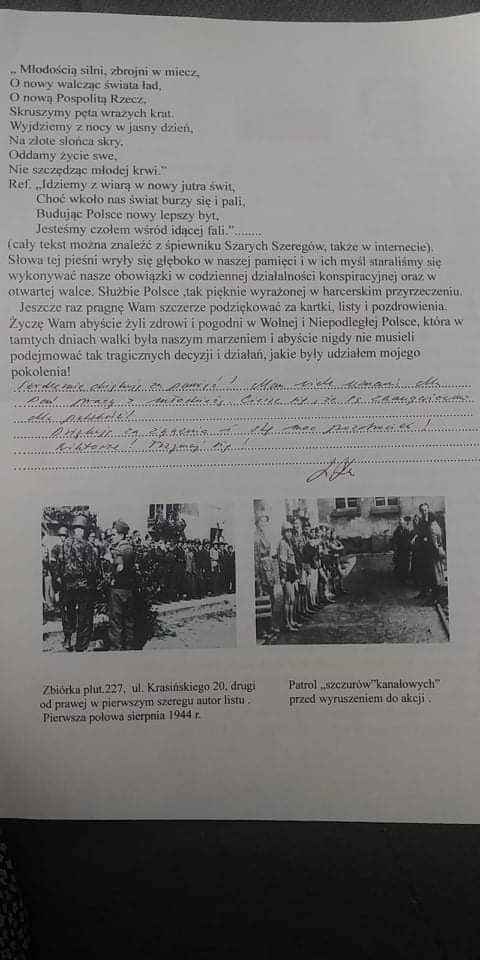 „ Młodością silni, zbrojni w miecz,
O nowy walcząc świata ład,
O nową Pospolitą Rzecz,
Skruszymy pęta wrażych krat.
Wyjdziemy z nocy w jasny dzień,
Na złote słońca skry,
Oddamy życie swe,
Nie szczędząc młodej krwi.”
Ref. „Idziemy z wiarą w nowy jutra świt,
Choć wkoło nas świat burzy się i pali,
Budując Polsce nowy lepszy byt,
Jesteśmy czołem wśród idącej fali.”........
(cały tekst można znaleźć z śpiewniku Szarych Szeregów, także w internecie).
Słowa tej pieśni wryły się głęboko w naszej pamięci i w ich myśl staraliśmy się
wykonywać nasze obowiązki w codziennej działalności konspiracyjnej oraz w
otwartej walce. Służbie Polsce ,tak pięknie wyrażonej w harcerskim przyrzeczeniu.
Jeszcze raz pragnę Wam szczerze podziękować za kartki, listy i pozdrowienia.
Życzę Wam abyście żyli zdrowi i pogodni w Wolnej i Niepodległej Polsce, która w
tamtych dniach walki była naszym marzeniem i abyście nigdy nie musieli
podejmować tak tragicznych decyzji i działań, jakie były udziałem mojego
pokolenia!
Serdecznie dziękuję za pamięć! Mam wiele uznania dla
pracy z młodzieżą. Cieszę się, że
dla
Dziękuję za życzenia i ślę moc pozdrowień!
Trzymaj się!
Zbiórka plut.227, ul. Krasińskiego 20, drugi
od prawej w pierwszym szeregu autor listu .
Pierwsza połowa sierpnia 1944 r.
Patrol „szczurów”kanałowych”
przed wyruszeniem do akcji .